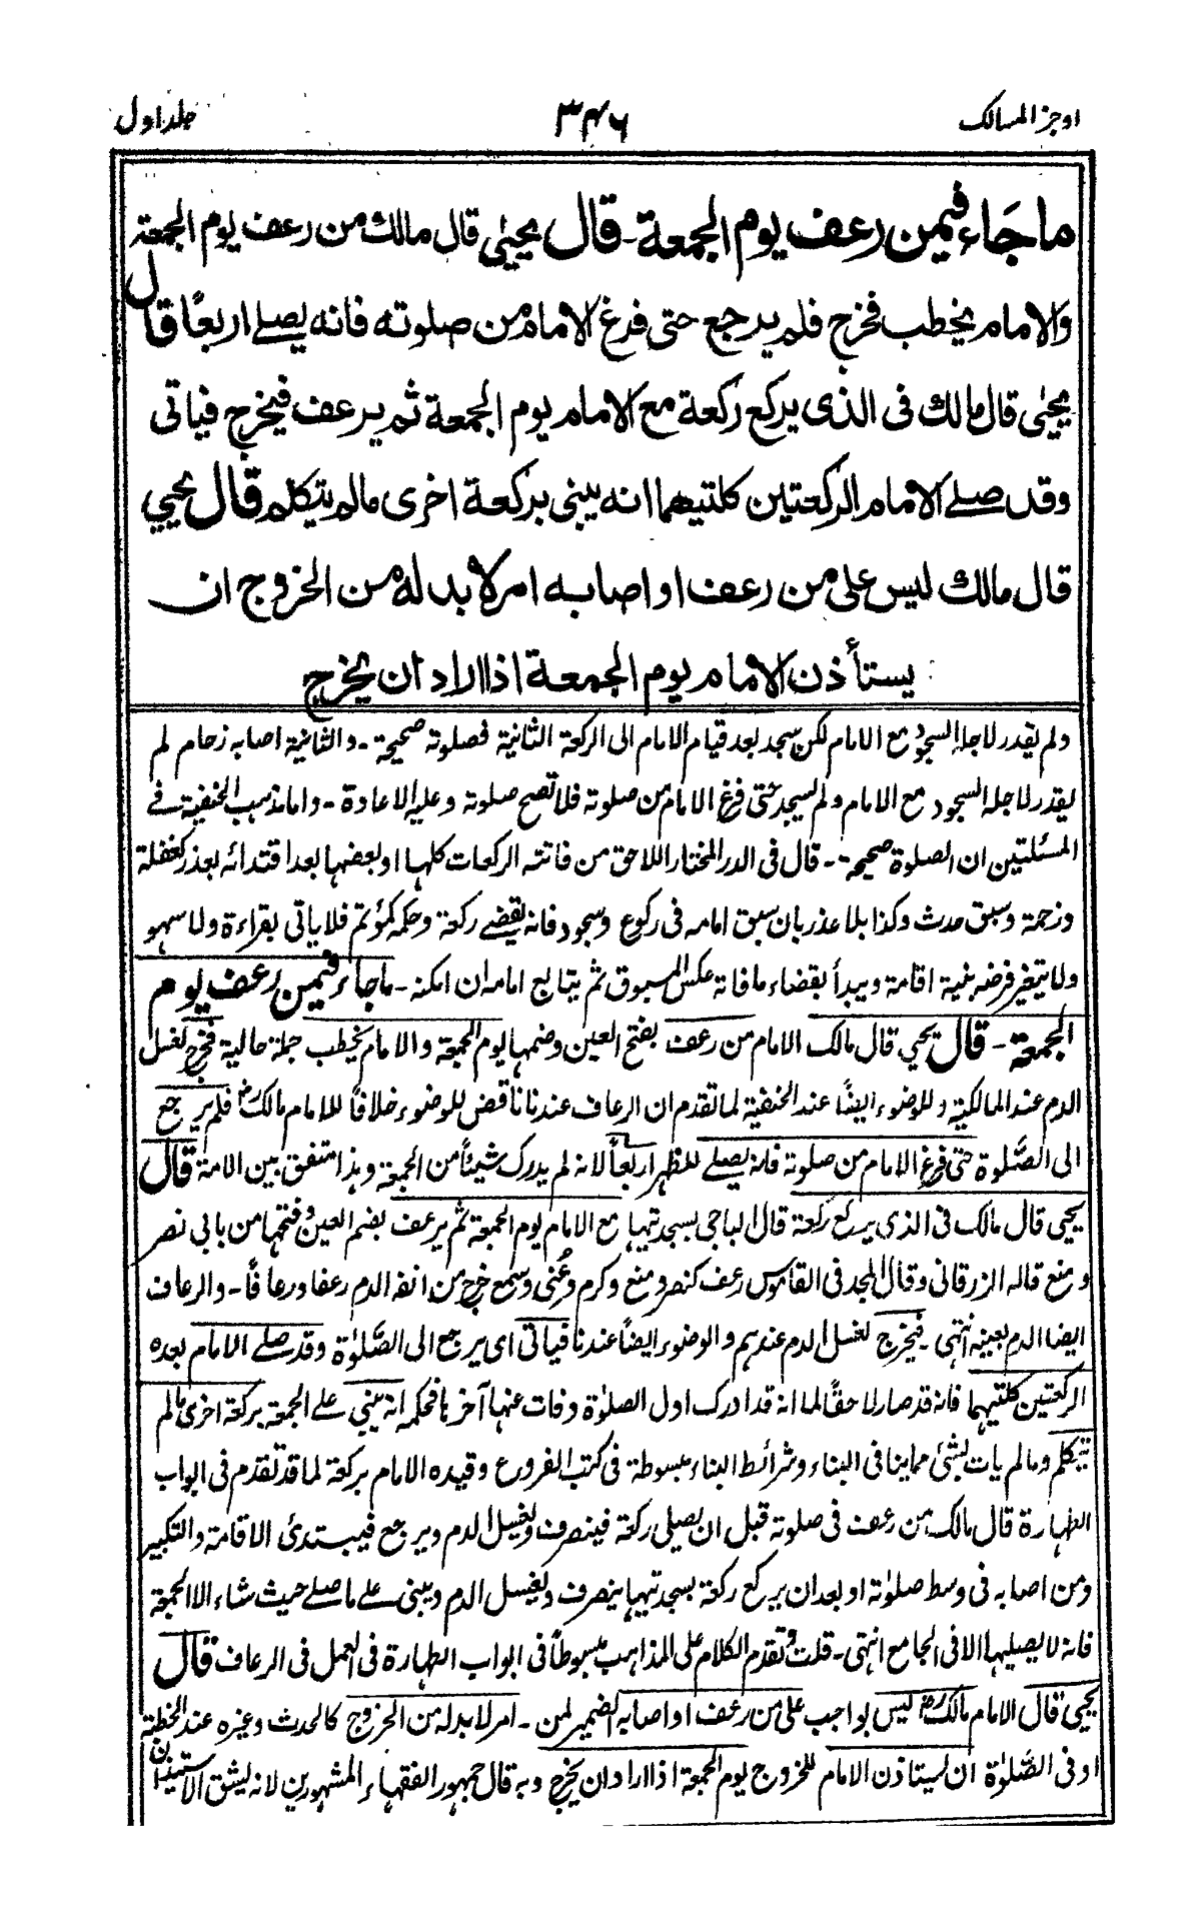 اوجز المسالك ٣٤٦ جلد اول
ما جَاء فيمن رعف يوم الجمعة - قال يحيٰى قال مالك من رعف يوم الجمعة
والامام يخطب فخرج فلم يرجع حتى فرغ الامام من صلوته فانه يصلے اربعًا قال
يحيٰى قال مالك فى الذى يركع ركعة مع الامام يوم الجمعة ثم يرعف فيخرج فياتى
وقد صلے الامام الركعتين كلتيهما انه يبنى بركعة اخرى مالم يتكلم قال يحيي
قال مالك ليس على من رعف او اصابه امر لا بد له من الخروج ان
يستأذن الامام يوم الجمعة اذا اراد ان يخرج
ولم يقدر لاجله السجود مع الامام لكن سجد بعد قيام الامام الى الركعة الثانية فصلوته صحيحة - والثانية اصابه زحام لم
يقدر لاجله السجود مع الامام ولم يسجد حتى فرغ الامام من صلوته فلا تصح صلوته وعليه الاعادة - واما مذهب الحنفية فے
المسئلتين ان الصلوة صحيحة - قال فى الدر المختار اللاحق من فاتته الركعات كلها او بعضها بعد اقتدائه بعذر كغفلة
وزحمة وسبق حدث وكذا بلا عذر بان سبق امامه فى ركوع وسجود فانه يقضے ركعة وحكمه كمؤتم فلا ياتى بقراءة ولا سهو
ولا يتغير فرضه بنية اقامة ويبدأ بقضاء ما فاته عكس المسبوق ثم يتابع امامه ان امكنه - ما جاء فيمن رعف يوم
الجمعة - قال يحيي قال مالك الامام من رعف بفتح العين وضمها يوم الجمعة والامام يخطب جملة حالية فخرج لغسل
الدم عند المالكية وللوضوء ايضًا عند الحنفية لما تقدم ان الرعاف عندنا ناقض للوضوء خلافًا للامام مالك رض فلم يرجع
الى الصَّلوة حتى فرغ الامام من صلوته فانه يصلے للظهر اربعًا لانه لم يدرك شيئًا من الجمعة وهذا متفق بين الامة قال
يحيى قال مالك فى الذى يركع ركعة قال الباجى بسجدتيها مع الامام يوم الجمعة ثم يرعف بضم العين وفتحها من بابى نصر
ومنع قاله الزرقانى وقال المجد فى القاموس رعف كنصر ومنع وكرم وعُنى وسمع خرج من انفه الدم رعفا ورعافًا - والرعاف
ايضا الدم بعينه انتهى - فيخرج لغسل الدم عندهم والوضوء ايضًا عندنا فياتى اى يرجع الى الصَّلوٰة وقد صلے الامام بعده
الركعتين كلتيهما فانه قد صار لاحقًا لما انه قد ادرك اول الصلوٰة وفات عنها آخرها فحكمه انه يبنى علے الجمعة بركعة اخرى مالم
يتكلم وما لم يات بشئ مما ينافى البناء وشرائط البناء مبسوطة فى كتب الفروع وقيده الامام بركعة لما قد تقدم فى ابواب
الطهارة قال مالك من رعف فى صلوته قبل ان يصلى ركعة فينصرف ويغسل الدم ويرجع فيبتدئ الاقامة والتكبير
ومن اصابه فى وسط صلوٰته او بعد ان يركع ركعة بسجدتيها ينصرف ويغسل الدم ويبنى علے ما صلے حيث شاء الا الجمعة
فانه لا يصليها الا فى الجامع انتهى - قلت وتقدم الكلام على المذاهب مبسوطًا فى ابواب الطهارة فى العمل فى الرعاف قال
يحيى قال الامام مالك رض ليس بواجب على من رعف او اصابه الضمير لمن - امر لا بد له من الخروج كالحدث وغيره عند الخطبة
او فى الصَّلوٰة ان يستاذن الامام للخروج يوم الجمعة اذا اراد ان يخرج وبه قال جمهور الفقهاء المشهورين لانه ليشق الاستيذان